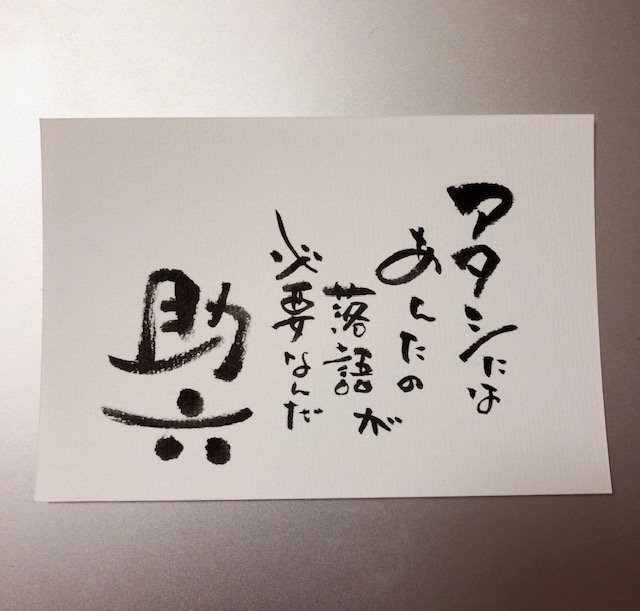 アタシには
あんたの
落語が
必要なんだ
助六